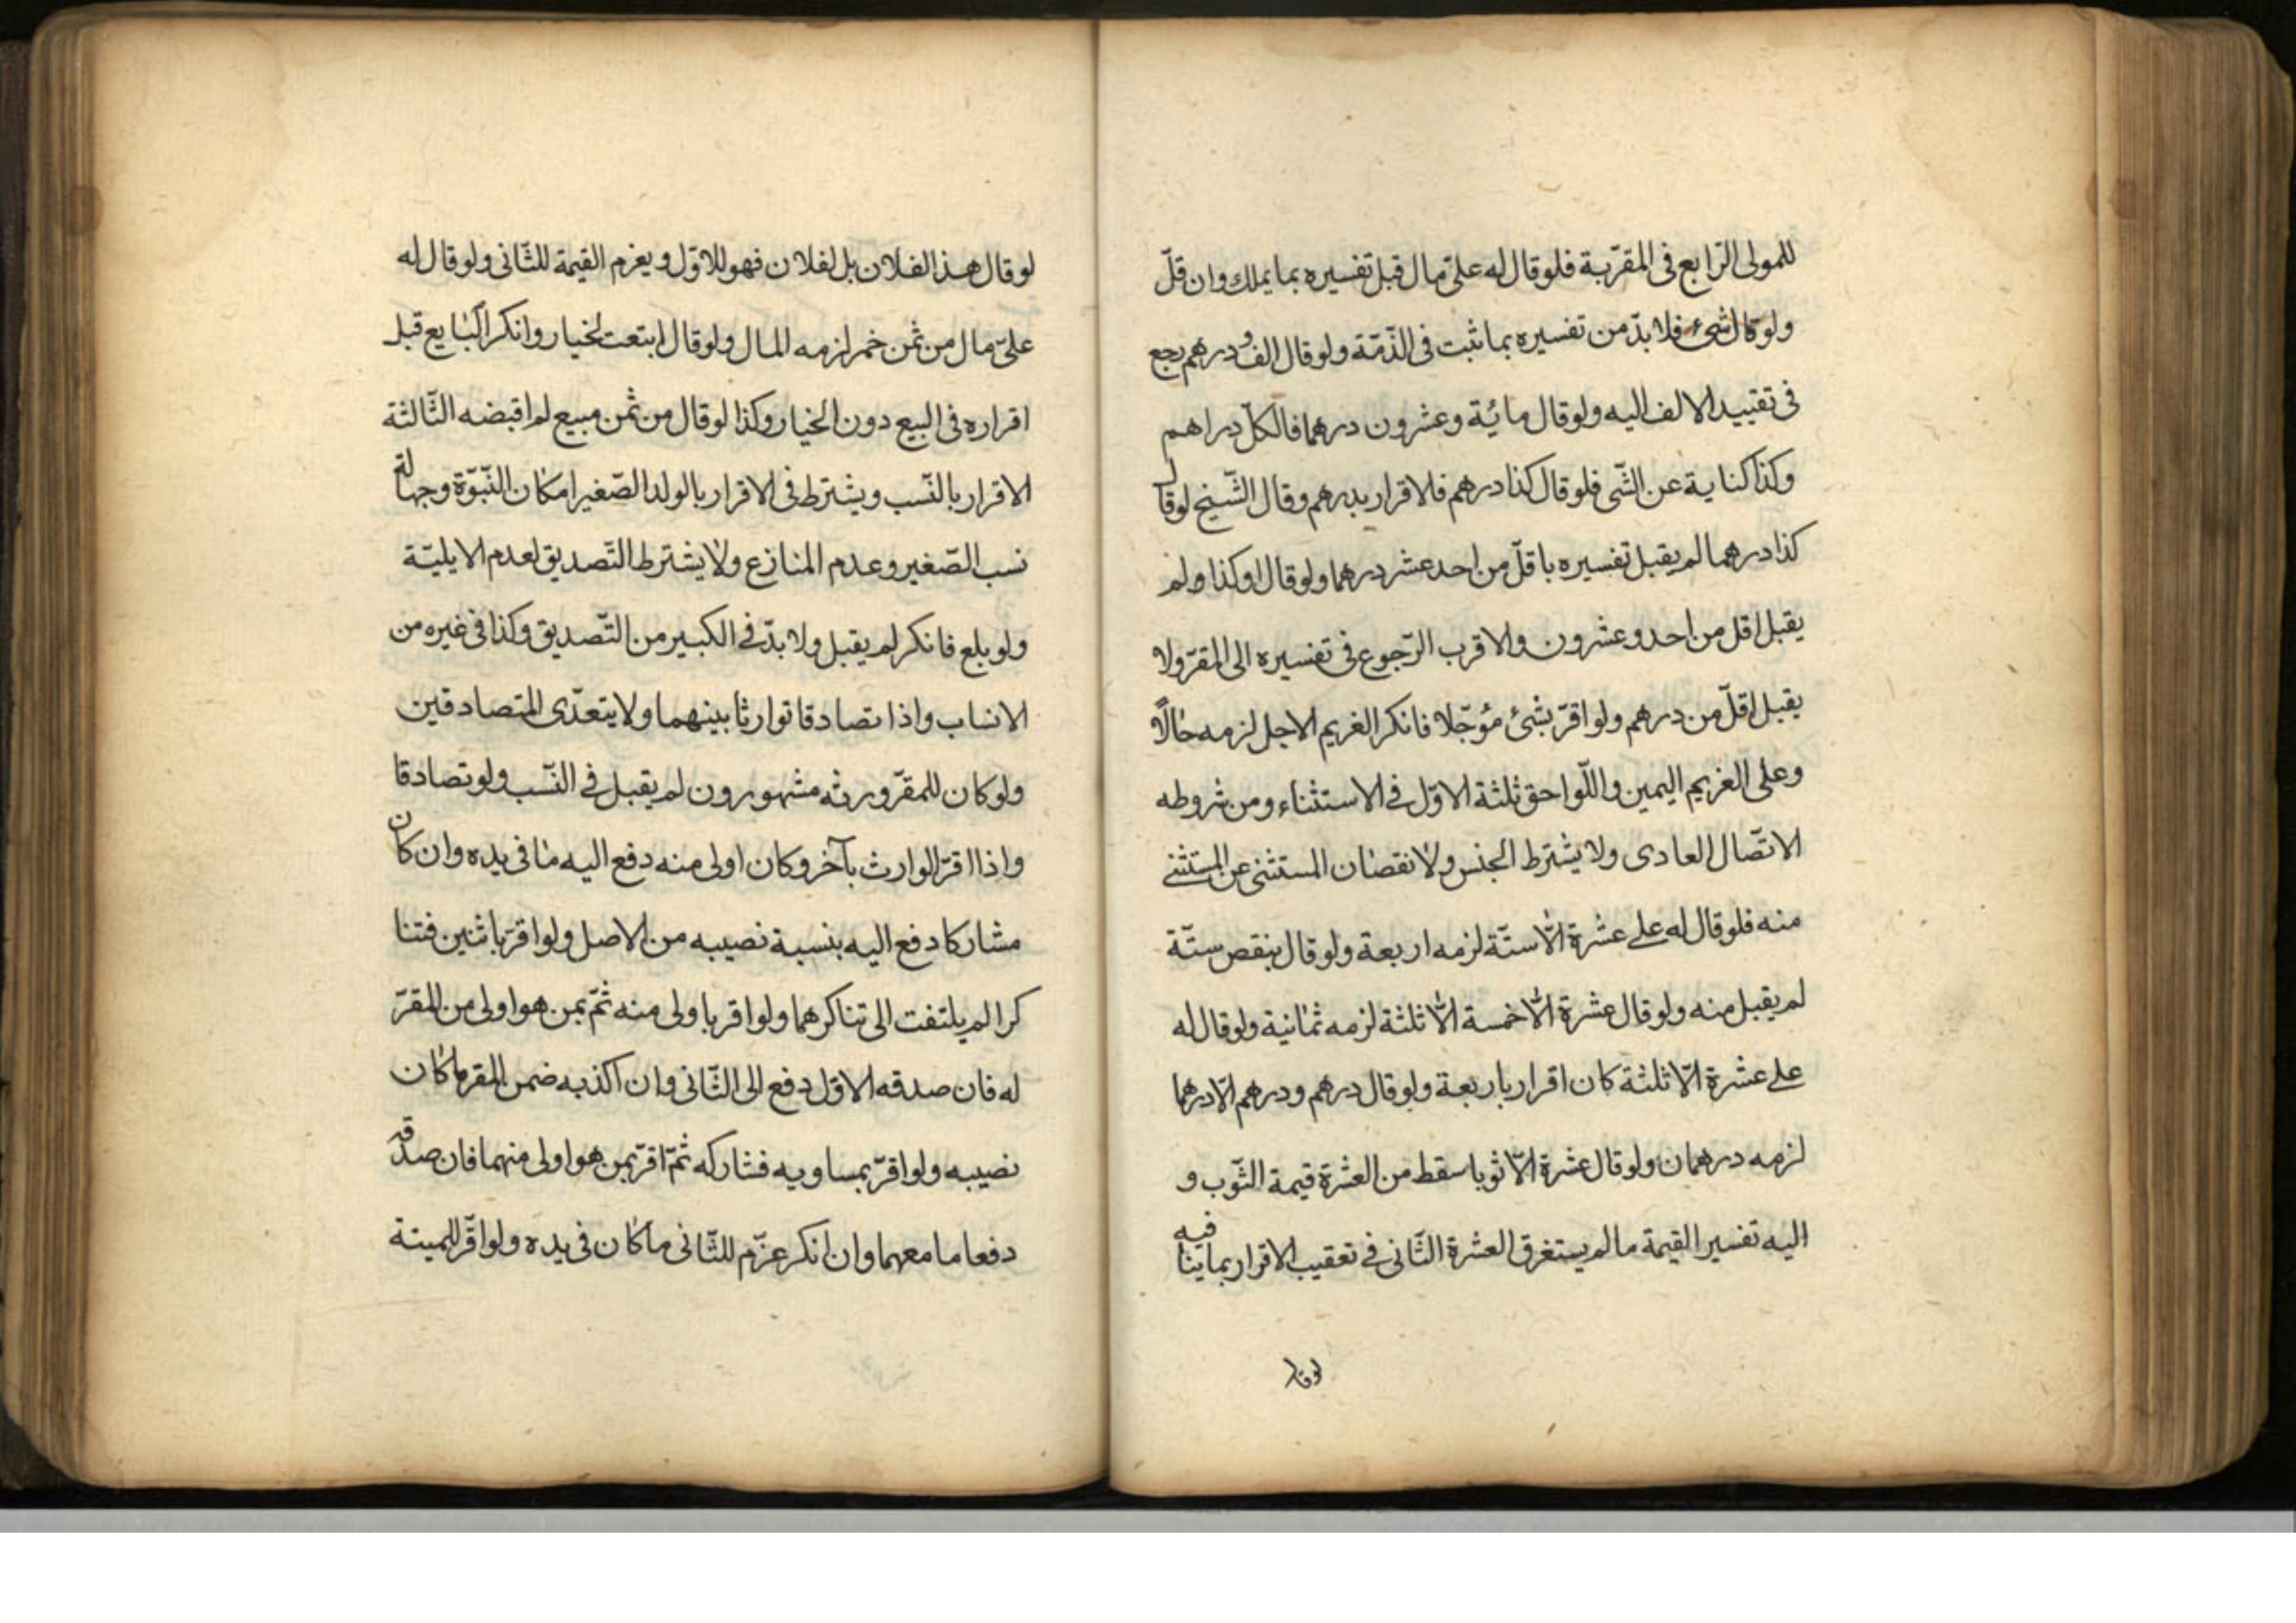 للمولى الرّابع فى المقرّبة فلو قال له علىّ مال قبل تفسيره بما يملك وان قلّ
ولو قال شئ فلا بدّ من تفسيره بما ثبت فى الذّمّة ولو قال الف و درهم رجع
فى تقييد الالف اليه ولو قال مائية وعشرون درهما فالكلّ دراهم
وكذا كناية عن الشّى فلو قال كذا درهم فلاقرار بدرهم وقال الشّيخ لو قال
كذا درهما لم يقبل تفسيره باقلّ من احد عشر درهما ولو قال او كذا ولم
يقبل اقل من احد وعشرون والاقرب الرّجوع فى تفسيره الى المقرّ ولا
يقبل اقلّ من درهم ولو اقرّ بشئ مؤجّلا فانكر الغريم الاجل لزمه حالًّا
وعلى الغريم اليمين واللّواحق ثلثة الاوّل فى الاستثناء ومن شروطه
الاتّصال العادى ولا يشترط الجنس ولا نقصان المستثنى عن المستثنى
منه فلو قال له على عشرة الّا ستّة لزمه اربعة ولو قال ينقص ستّة
لم يقبل منه ولو قال عشرة الّا خمسة الّا ثلثة لزمه ثمانية ولو قال له
على عشرة الّا ثلثة كان اقرار باربعة ولو قال درهم ودرهم الّا درهما
لزمه درهمان ولو قال عشرة الّا ثوبا سقط من العشرة قيمة الثّوب و
اليه تفسير القيمة ما لم يستغرق العشرة الثّانى فى تعقيب الاقرار بما ينافيه
لو قال
لو قال هذا لفلان بل لفلان فهو للاوّل ويغرم القيمة للثّانى ولو قال له
علىّ مال من ثمن خمر لزمه المال ولو قال ابتعت لخيار وانكر البايع قبل
اقراره فى البيع دون الخيار وكذا لو قال من ثمن مبيع لم اقبضه الثّالثة
الاقرار بالنّسب ويشترط فى الاقرار بالولد الصّغير امكان النّبوّة وجهالة
نسب الصّغير وعدم المنازع ولا يشترط التّصديق لعدم الايليّة
ولو بلع فانكر لم يقبل ولا بدّ فى الكبير من التّصديق وكذا فى غيره من
الانساب واذا تصادقا توارثا بينهما ولا يتعدّى المتصادقين
ولو كان للمقرّ ورثه مشهورون لم يقبل فى النّسب ولو تصادقا
واذا اقرّ الوارث بآخر وكان اولى منه دفع اليه ما فى يده وان كان
مشاركا دفع اليه بنسبة نصيبه من الاصل ولو اقرّ باثنين فتنا
كرا لم يلتفت الى تناكرهما ولو اقر باولى منه ثمّ بمن هو اولى من المقرّ
له فان صدقه الاوّل دفع الى الثّانى وان اكذبه ضمن المقر ما كان
نصيبه ولو اقرّ بمساويه فشاركه ثمّ اقرّ بمن هو اولى منهما فان صدّقه
دفعا ما معهما وان انكر عزّم للثّانى ما كان فى يده ولو اقرّ للميتة